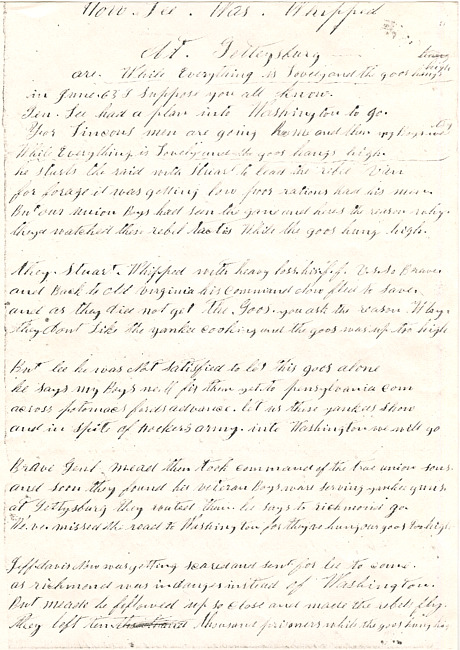 How Lee Was Whipped
At Gettysburg
hang
high
are While Everything is Lovely and the goos hangs
in June 63 I Suppose you all know
Gen. Lee had a plan into Washington to go.
For Lincons men are going home and then my boys
While Everything is Lovely and the goos hangs high.
he starts the raid with Stuart to lead the rebel Van
for forage it was getting low poor rations had his men
But our union Boys had seen the game and heres the reason why.
they watched these rebel tactis While the goos hung high.
they Stuart Whipped with heavy loss his U.S. So Brave
and Back to Old Virginia his command now fled to Save
and as they did not get the Goos you ask the reason Why
they dont Like the yankee cooking and the goos was up to high
But lee he was Not Satisfied to let this goos alone
he says my Boys we'll for them yet to pensylvania com
across potomacs fords advance. let us these yankees show
and in spite of hookers army into Washington we will go
Brave Genl mead then took command of the true union sons
and soon they found his veteran Boys ware serving yankee guns
at Gettysburg they routed them he says to richmond go
We've missed the road to Washington for they've hung our goos to high
Jeff davis Now was getting scared and sent for lee to come
as richmond was in danger instead of Washington.
But meade he followed up so close and made the rebels fly
they left ten thousand prisoners while the goos hung high